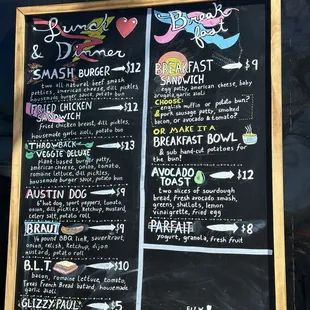 Lunch
& Dinner
SMASH BURGER $12
two all natural beef smash
patties, american cheese, dill pickles,
housemade burger sauce, potato bun
FRIED CHICKEN $12
SANDWICH
fried chicken breast, dill pickles,
housemade garlic aioli, potato bun
THROWBACK $13
VEGGIE DELUXE
plant-based burger patty,
american cheese, onion, tomato,
romaine lettuce, dill pickles,
housemade burger sauce, potato bun
AUSTIN DOG $9
hot dog, sport peppers, tomato,
onion, dill pickles, ketchup, mustard,
celery salt, potato roll
BRAUT $9
1/4 pound link, sauerkraut,
onion, relish, ketchup, dijon
mustard, potato roll
B.L.T. $10
bacon, romaine lettuce, tomato,
Texas French Bread, housemade
garlic aioli
GLIZZY PAUL $5
Break
fast
BREAKFAST $9
SANDWICH
egg patty, american cheese, baby
arugula, garlic aioli
CHOOSE:
english muffin or potato bun?
& pork sausage patty, smoked
bacon, or avocado & tomato?
OR MAKE IT A
BREAKFAST BOWL
& sub hand-cut potatoes for
the bun!
AVOCADO $12
TOAST
two slices of sourdough
bread, fresh avocado smash,
greens, shallots, lemon
vinaigrette, fried egg
PARFAIT $8
yogurt, granola, fresh fruit